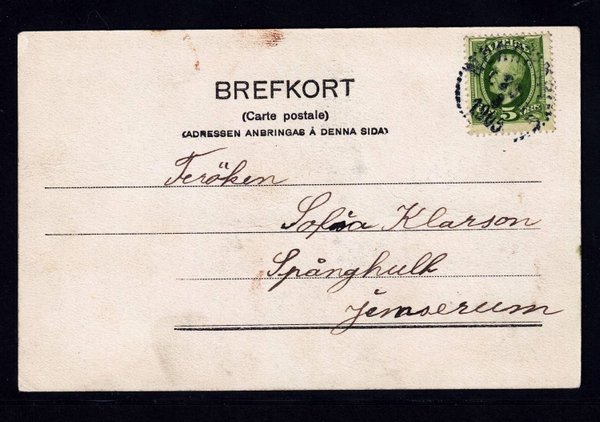 BREFKORT
(Carte postale)
(ADRESSEN ANBRINGAS Å DENNA SIDA)
Feröken
Sofia Klarson
Spånghult
Jemserum
5
1903